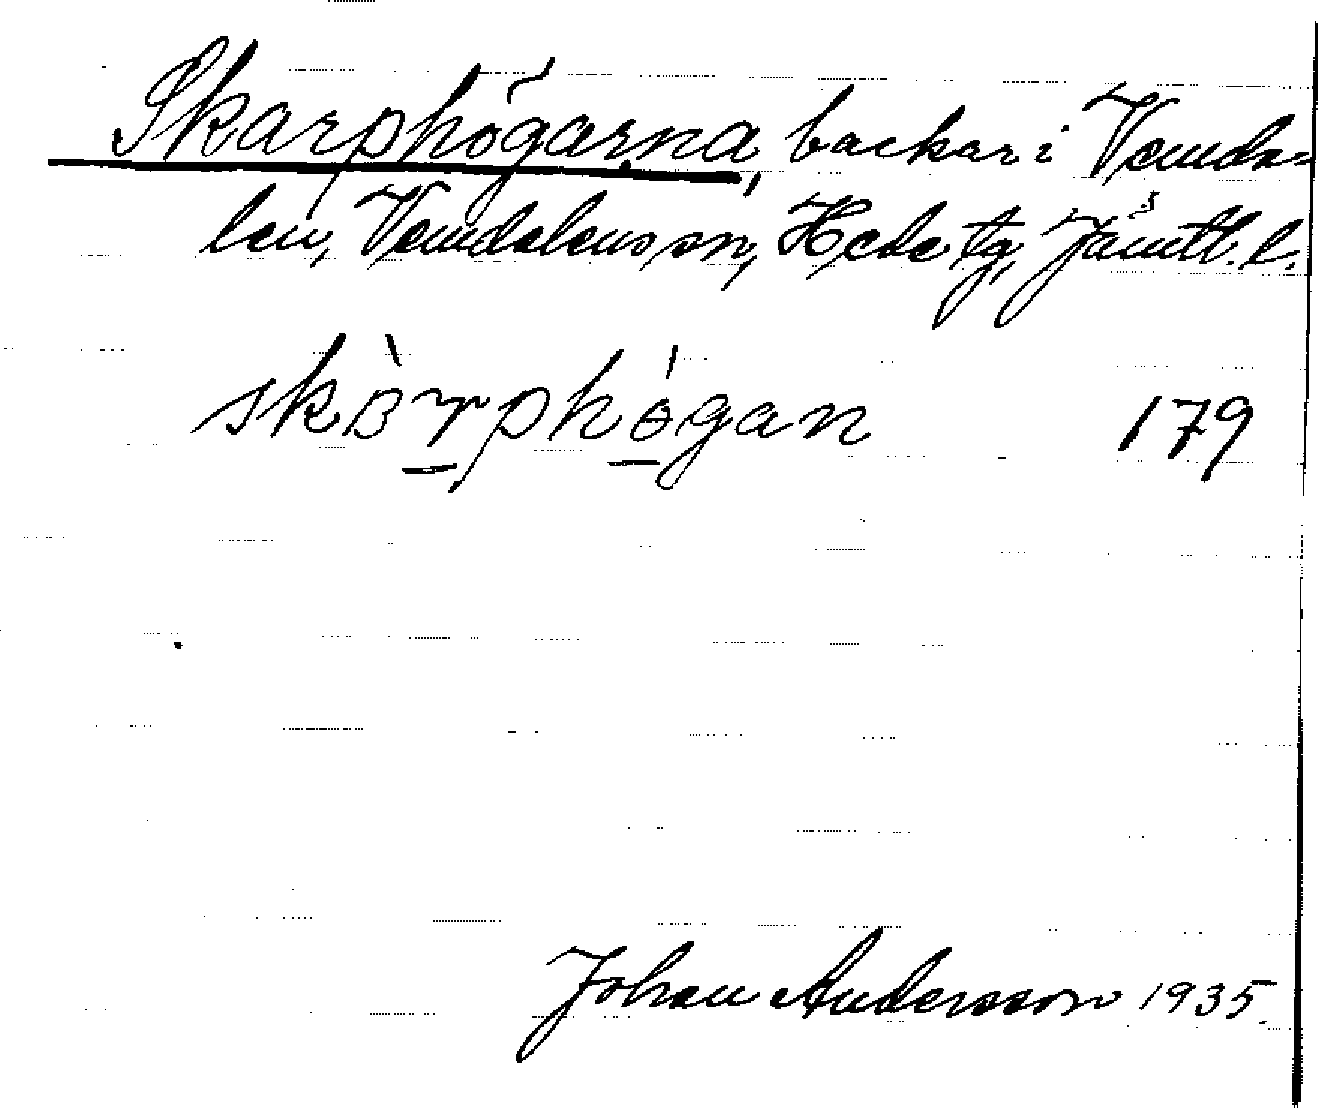 Skarphögarna, backar i Vemda-
len, Vemdalens sn, Hede tg, Jämtl. l.
skòrphógan 179
Johan Andersson 1935.